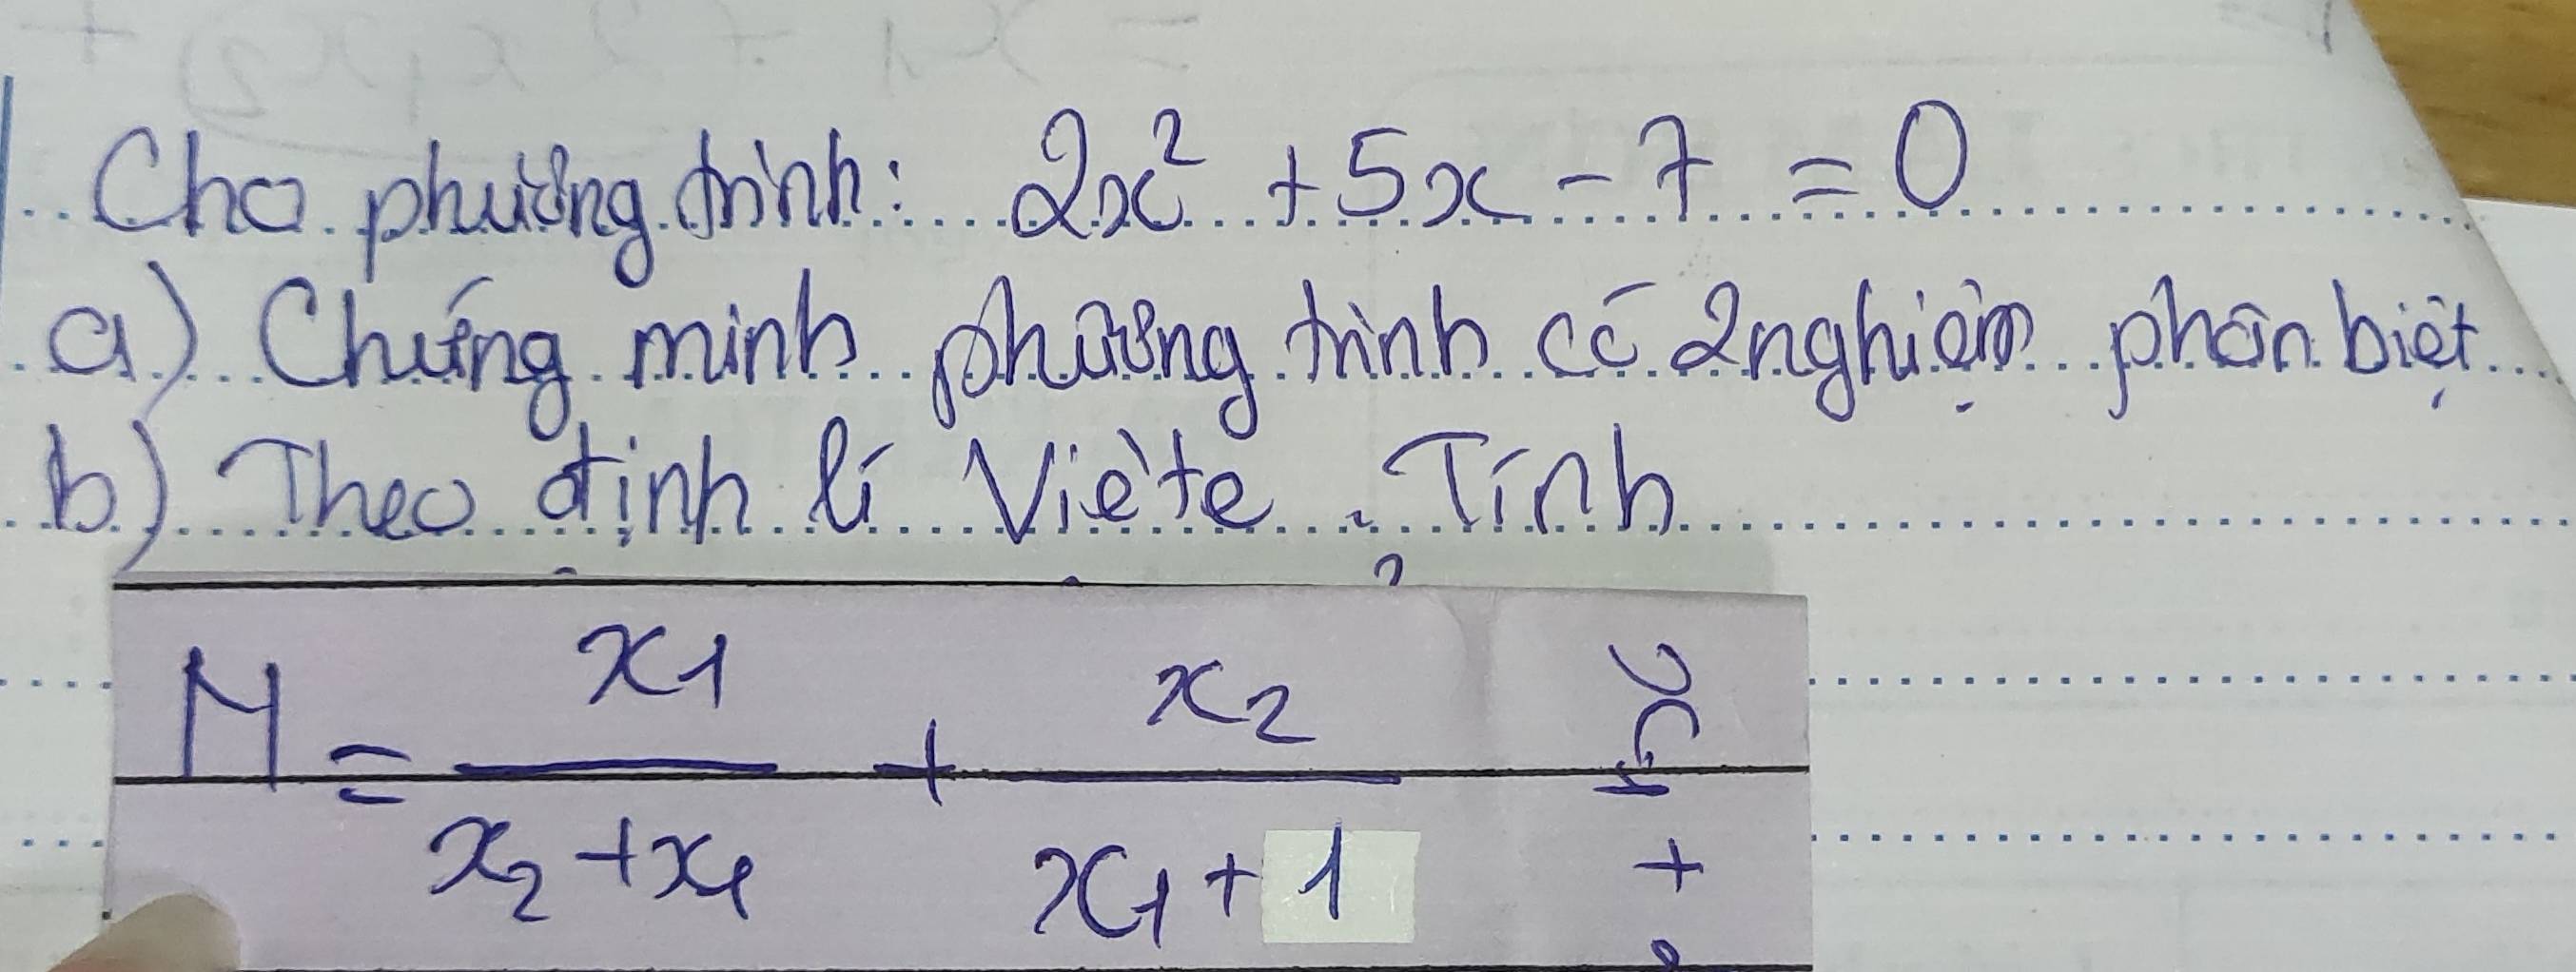 Cho phương trình: 2x² + 5x - 7 = 0
a) Chứng minh phương trình có 2 nghiệm phân biệt
b) Theo định lí Viète. Tính
M = x₁/(x₂ + x₁) + x₂/(x₁ + 1)